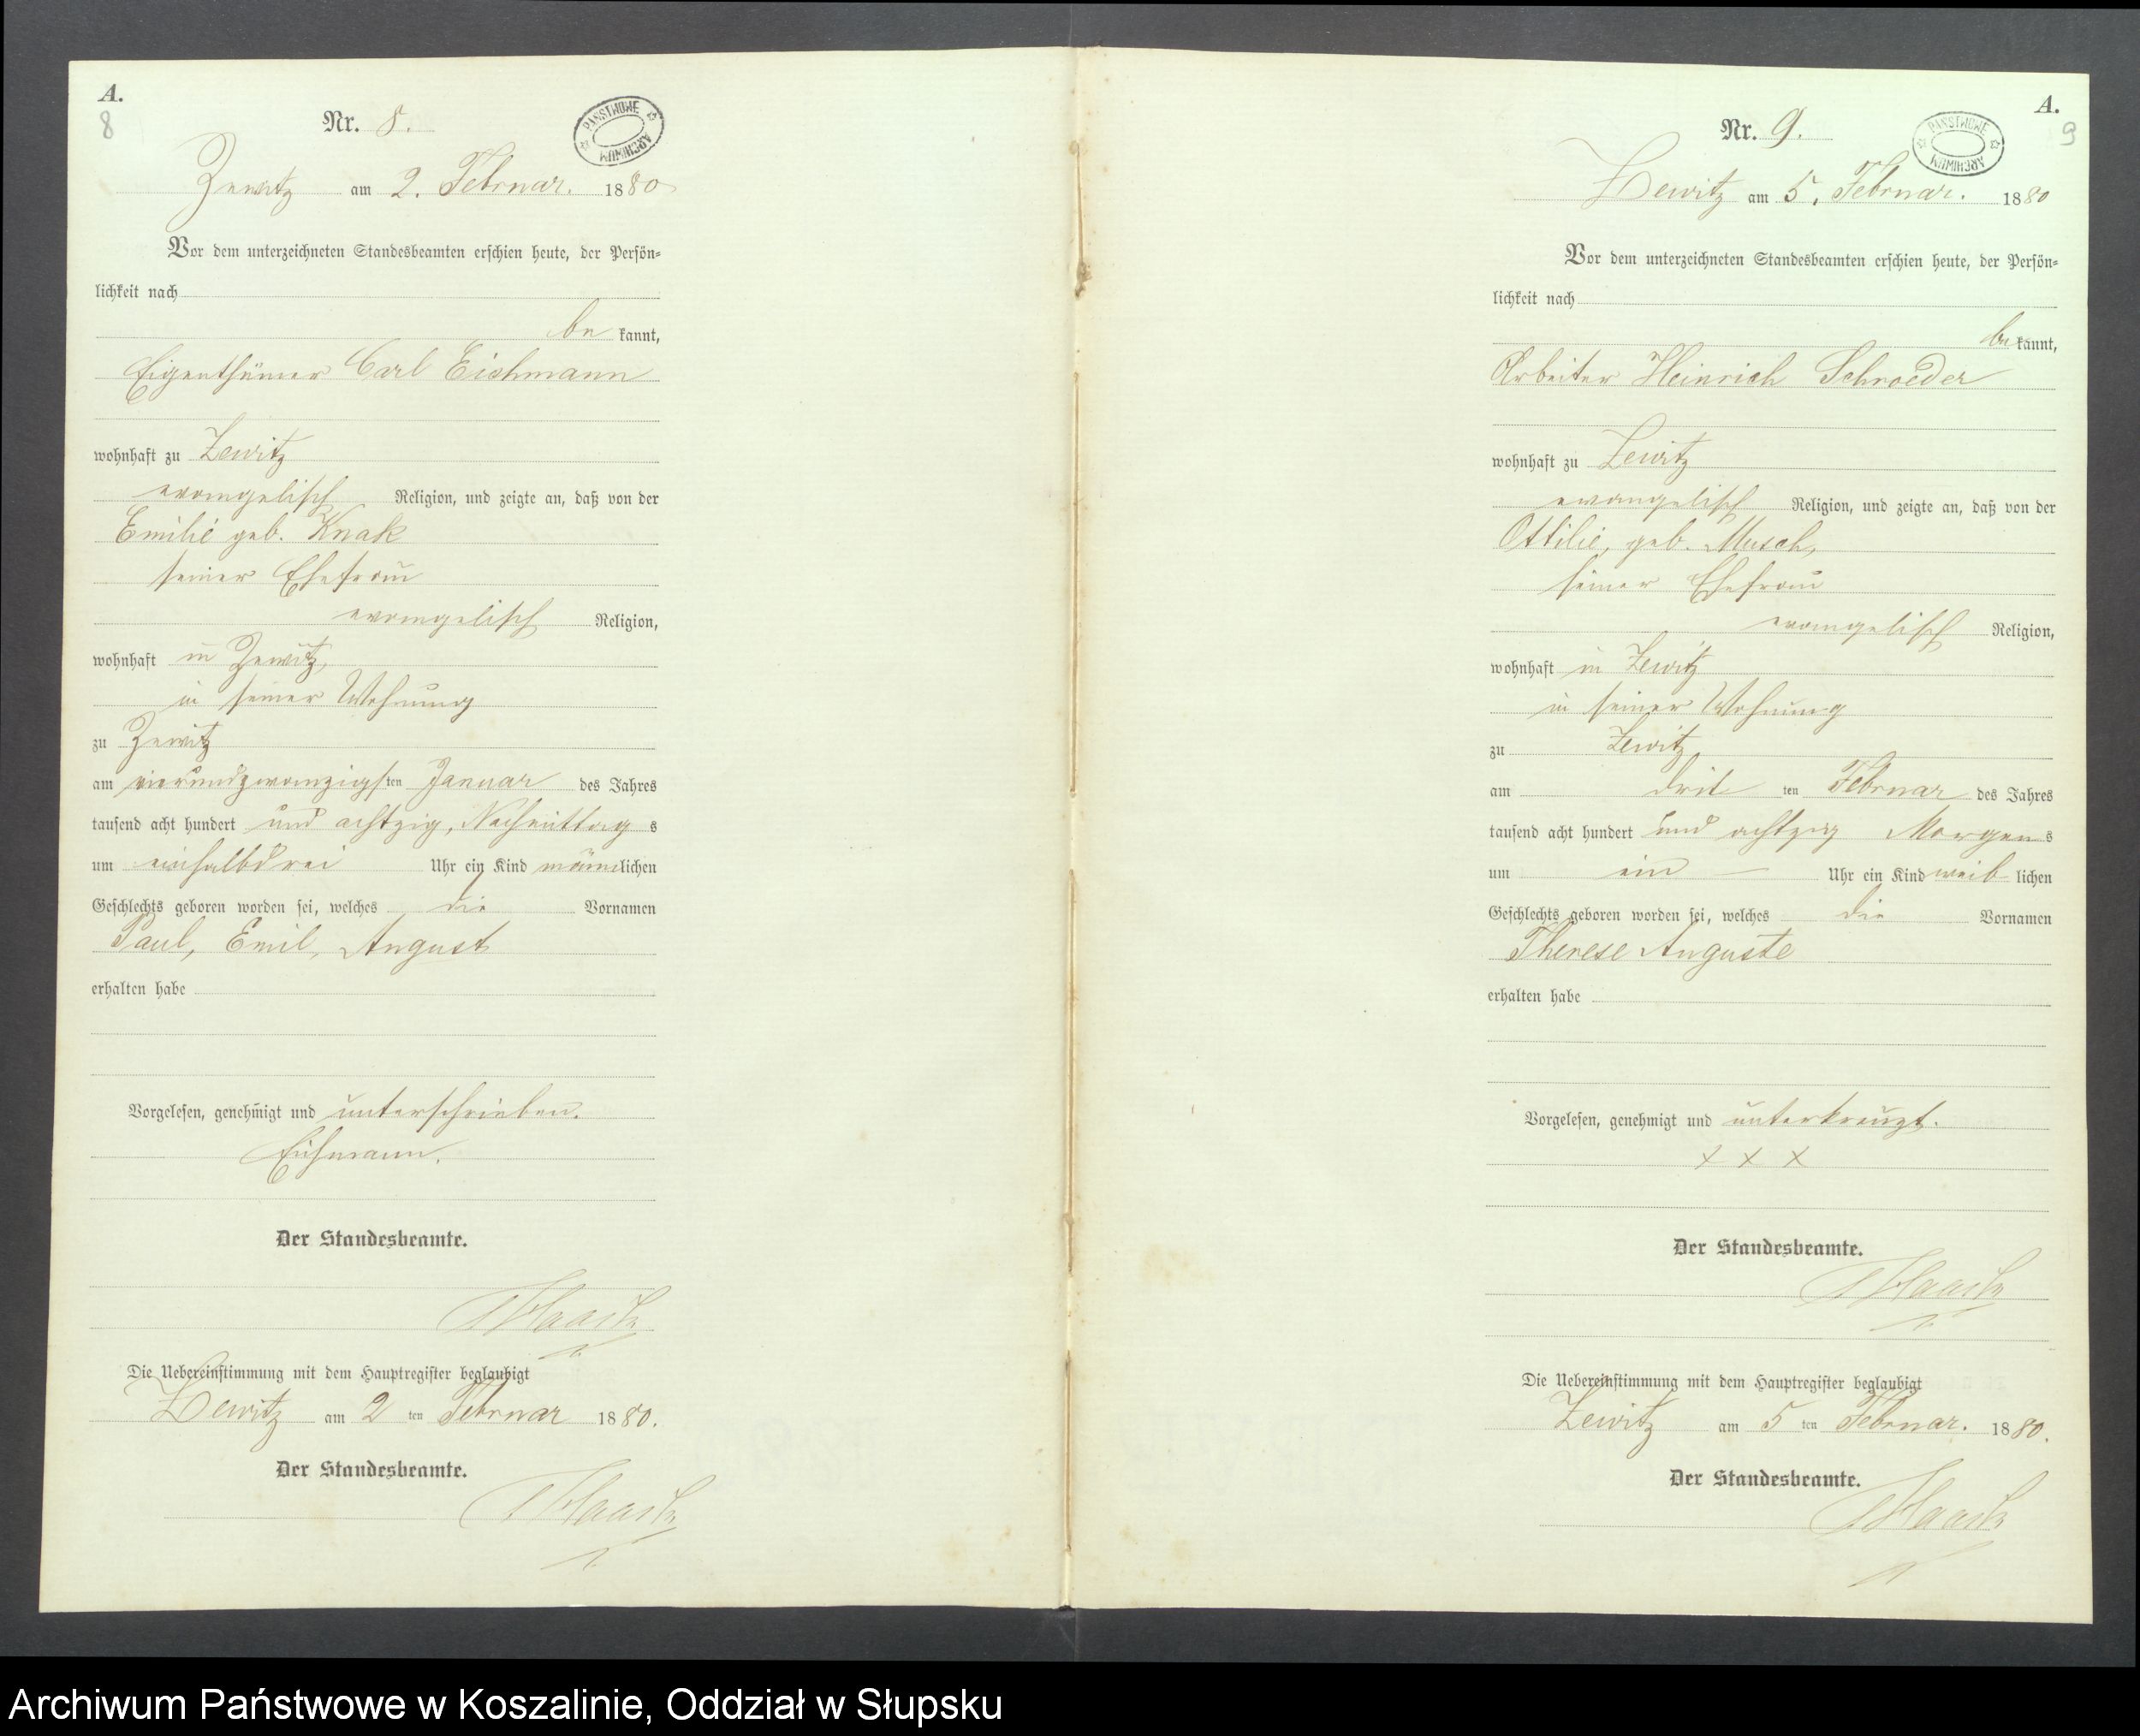 A.
8
Nr. 8.
PAŃSTWOWE ARCHIWUM
Zewitz am 2. Februar. 1880
Vor dem unterzeichneten Standesbeamten erschien heute, der Persön-
lichkeit nach
be kannt,
Eigenthümer Carl Eichmann
wohnhaft zu Zewitz
evangelisch Religion, und zeigte an, daß von der
Emilie geb. Knak
seiner Ehefrau
evangelisch Religion,
wohnhaft in Zewitz,
in seiner Wohnung
zu Zewitz
am vierundzwanzigsten Januar des Jahres
tausend acht hundert und achtzig, Nachmittags
um einhalbdrei Uhr ein Kind männlichen
Geschlechts geboren worden sei, welches die Vornamen
Paul, Emil, August
erhalten habe
Vorgelesen, genehmigt und unterschrieben.
Eichmann.
Der Standesbeamte.
Die Uebereinstimmung mit dem Hauptregister beglaubigt
Zewitz am 2 ten Februar 1880.
Der Standesbeamte.
A.
9
Nr. 9.
PAŃSTWOWE ARCHIWUM
Zewitz am 5. Februar. 1880
Vor dem unterzeichneten Standesbeamten erschien heute, der Persön-
lichkeit nach
be kannt,
Arbeiter Heinrich Schroeder
wohnhaft zu Zewitz
evangelisch Religion, und zeigte an, daß von der
Ottilie, geb. Musch,
seiner Ehefrau
evangelisch Religion,
wohnhaft in Zewitz
in seiner Wohnung
zu Zewitz
am drit ten Februar des Jahres
tausend acht hundert und achtzig Morgens
um ein Uhr ein Kind weib lichen
Geschlechts geboren worden sei, welches die Vornamen
Therese Auguste
erhalten habe
Vorgelesen, genehmigt und unterkreuzt.
x x x
Der Standesbeamte.
Die Uebereinstimmung mit dem Hauptregister beglaubigt
Zewitz am 5 ten Februar. 1880.
Der Standesbeamte.
Archiwum Państwowe w Koszalinie, Oddział w Słupsku